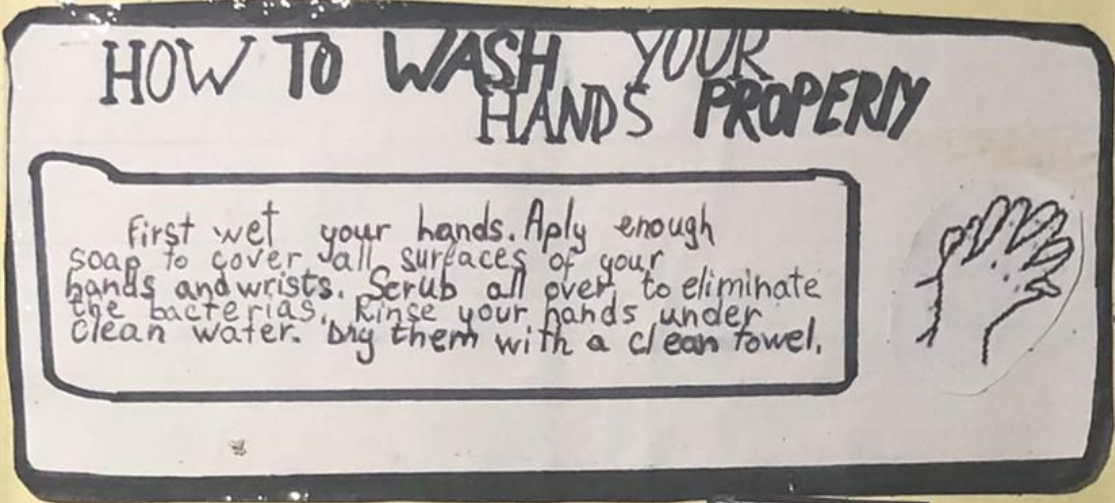 HOW TO WASH YOUR
HANDS PROPERLY
First wet your hands. Aply enough
soap to cover all surfaces of your
hands and wrists. Scrub all over to eliminate
the bacterias. Rinse your hands under
clean water. Dry them with a clean towel.